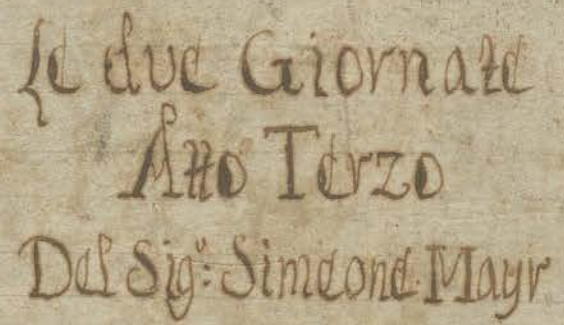 Le due Giornate
Atto Terzo
Del Sigr: Simeone Mayr